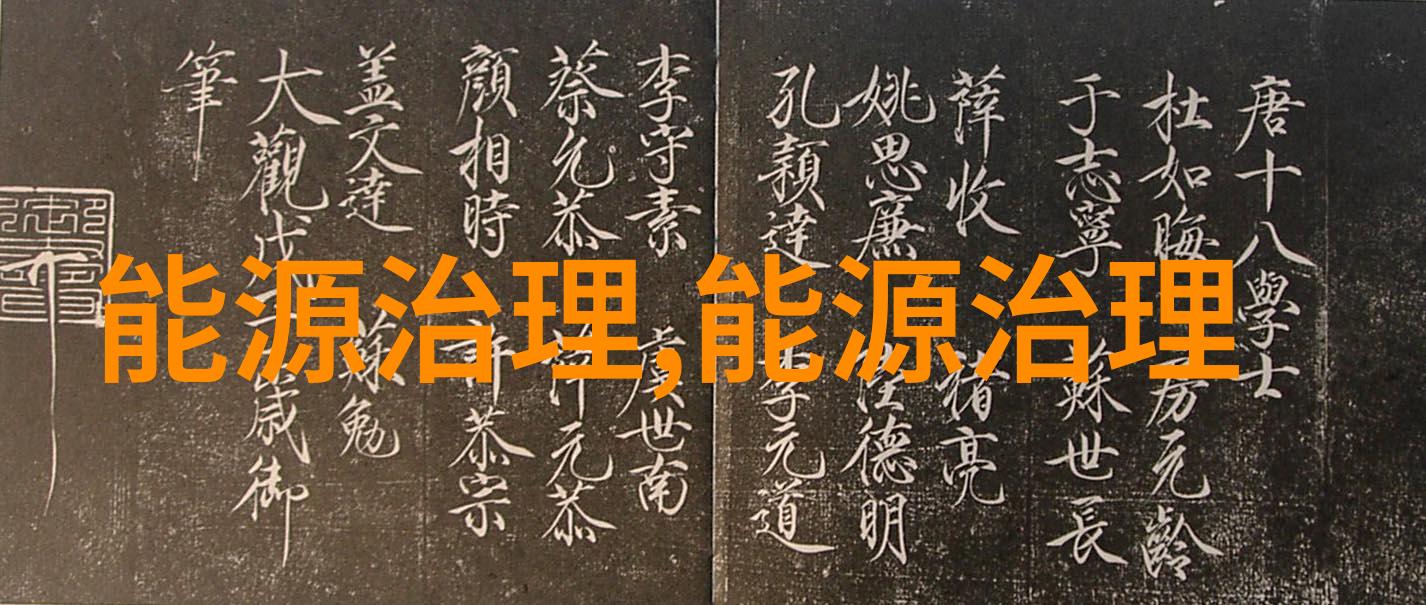 唐十八學士
杜如晦 房元齡
于志寧 蘓世長
薛收 褚亮
姚思廉 德明
孔穎達 李元道
李守素 虞世南
蔡允恭 元恭
顔相時 許恭宗
盖文達 蘓勉
大觀戊子歲御
筆
能源治理,能源治理